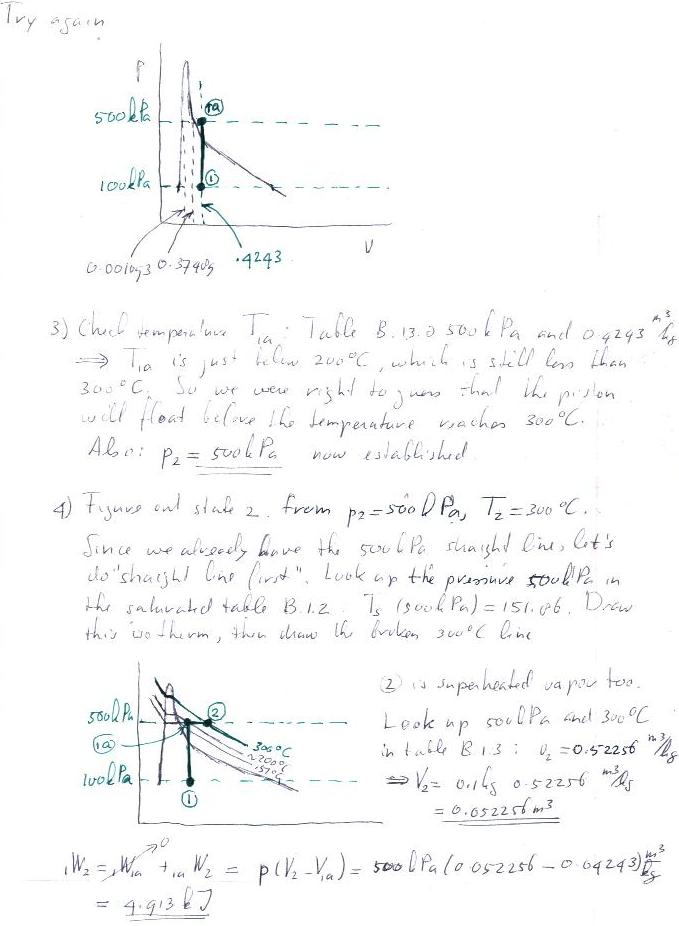 Try again
P
500kPa
1a
100kPa
1
V
0.001093 0.37489 .4243
3) Check temperature T1a: Table B.13 @ 500 kPa and 0.4243 m³/kg
⇒ T1a is just below 200°C, which is still less than
300°C. So we were right to guess that the piston
will float before the temperature reaches 300°C.
Also: p2 = 500kPa now established
4) Figure out state 2. from p2=500kPa, T2=300°C.
Since we already have the 500kPa straight line, let's
do "straight line first". Look up the pressure 500kPa in
the saturated table B.1.2. Ts (500kPa) = 151.86. Draw
this isotherm, then draw the broken 300°C line
500kPa
2
1a
300°C
~200°C
151°C
100kPa
1
2 is superheated vapor too.
Look up 500kPa and 300°C
in table B 1.3: v2 = 0.52256 m³/kg
⇒ V2 = 0.1kg 0.52256 m³/kg
= 0.052256 m³
1W2 = 1W1a 0 + 1aW2 = p(V2 - V1a) = 500 kPa (0.052256 - 0.04243) m³/kg
= 4.913 kJ